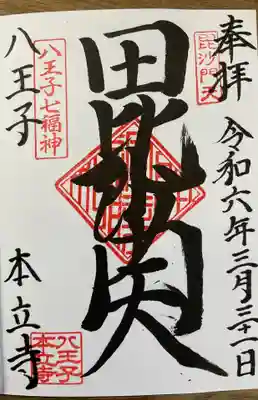 奉拝
毘沙門天
令和六年三月三十一日
毘沙門天
八王子七福神
八王子
本立寺
八王子
本立寺